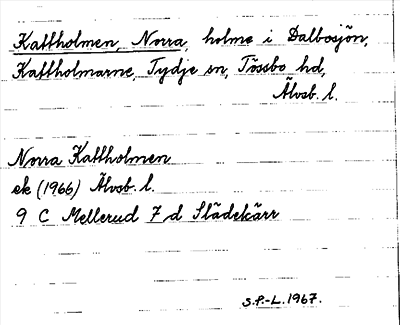 Kattholmen, Norra, holme i Dalbosjön,
Kattholmarne, Tydje sn, Tössbo hd,
Älvsb. l.
Norra Kattholmen
ek (1966) Älvsb. l.
9 C Mellerud 7 d Slädekärr
S.P.-L. 1967.